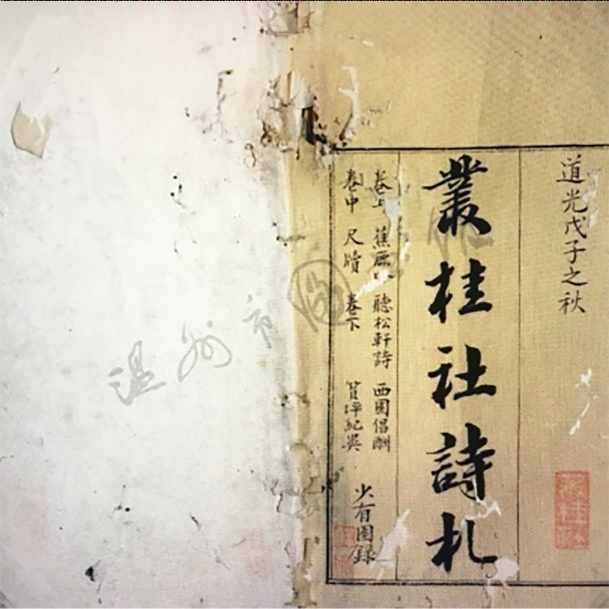 道光戊子之秋
叢桂社詩札
卷上 蕉 聽松軒詩 西園倡酬
卷中 尺牘 卷下 紀異
少有園錄
叢桂社
温州市圖